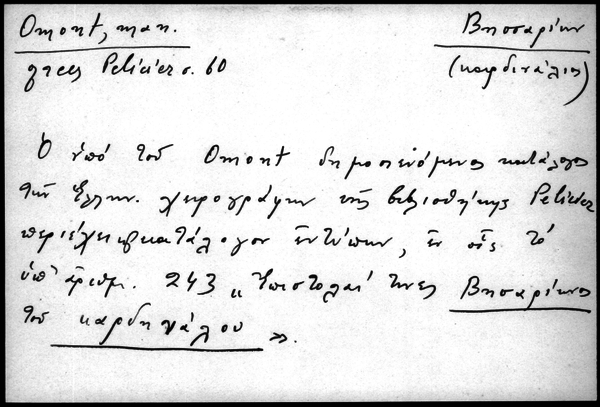 Omont, man. Βησαρίων
grecs Pelicier σ. 60 (καρδινάλιος)
Ὁ ὑπό τοῦ Omont δημοσιευόμενος κατάλογος
τῶν Ἑλλην. χειρογράφων τῆς βιβλιοθήκης Pelicier
περιέχει κατάλογον ἐντύπων, ἐν οἷς τό
ὑπ' ἀριθμ. 243 „Ἐπιστολαί τινες Βησαρίωνος
τοῦ καρδηνάλου».